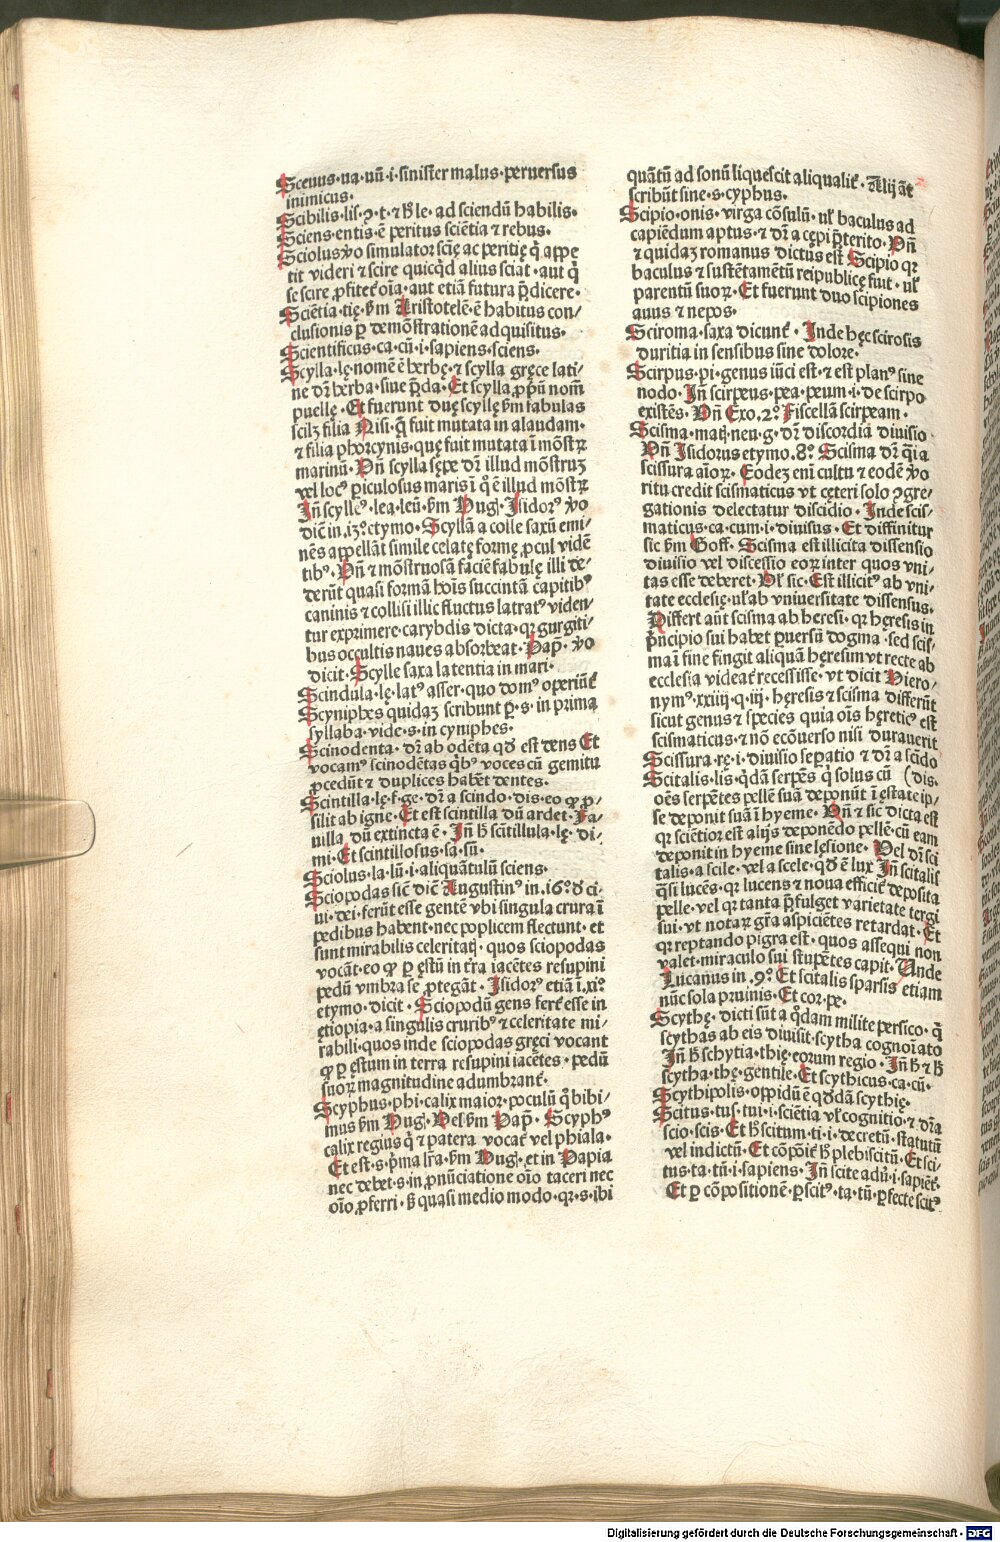 Sceuus·ua·uū·i·sinister malus·peruersus
inimicus·
Scibilis·lis·ꝯ·t·⁊ hͦ le·ad sciendū habilis·
Sciens·entis·ē peritus sciētia ⁊ rebus·
Sciolus ꝟo simulator scīę ac peritię q̇ appe
tit videri ⁊ scire quicq̇d alius sciat·aut q̇
se scire ꝓfitet᷑ oīa·aut etiā futura p̄dicere·
Sciētia·tię·ẜm Aristotelē·ē habitus con/
clusionis ꝑ demōstrationē adquisitus·
Scientificus·ca·cū·i·sapiens·sciens·
Scylla·lę·nomē ē herbę·⁊ scylla gręce lati/
ne dr̄ herba·siue p̄da·Et scylla ꝓpiū nom̄
puellę·Et fuerunt duę scyllę ẜm fabulas
scilꝫ filia Nisi·q̄ fuit mutata in alaudam·
⁊ filia phorcynis·quę fuit mutata ī mōstꝝ
marinū·Vn̄ scylla sępe dr̄ illud mōstruꝫ
vel locꝰ ꝑiculosus maris ī q̊ ē illud mōstꝝ
Jn̄ scyllēꝰ·lea·leū·ẜm Hug·Jsidorꝰ ꝟo
dic̄ in·13·etymo·Scyllā a colle saxū emi/
nēs appellāt simile celatę formę ꝓcul vidē
tibꝰ·Vn̄ ⁊ mōstruosā faciē fabulę illi de/
derūt quasi formā hoīs succintā capitibꝰ
caninis ⁊ collisi illic fluctus latratꝰ viden/
tur exprimere·carybdis dicta·qꝛ gurgiti/
bus occultis naues absorbeat·Pap̄·ꝟo
dicit·Scylle saxa latentia in mari·
Scindula·lę·latꝰ asser·quo domꝰ operiūt᷑
Scyniphes quidaꝫ scribunt ꝑ·s·in prima
syllaba·vide·s·in cyniphes·
Scinodenta·dr̄ ab odēta qd̄ est dens Et
vocamꝰ scinodētas q̇bꝰ voces cū gemitu
ꝓcedūt ⁊ duplices habēt dentes·
Scintilla·lę·f·ge·dr̄ a scindo·dis·eo ꝙ ꝓ/
silit ab igne·Et est scintilla dū ardet·Fa/
uilla dū extincta ē·Jn̄ hͦ scītillula·lę·di/
mi·Et scintillosus·sa·sū·
Sciolus·la·lū·i·aliquātulū sciens·
Sciopodas sic̄ dic̄ Augustinꝰ in·16·d̄ ci/
ui·dei·ferūt esse gentē vbi singula crura ī
pedibus habent·nec poplicem flectunt·et
sunt mirabilis celeritatꝭ·quos sciopodas
vocāt·eo ꝙ ꝑ ęstū in tr̄ra iacētes resupini
pedū vmbra se ꝓtegāt·Jsidorꝰ etiā ī·xi·
etymo·dicit·Sciopodū gens fert᷑ esse in
ętiopia·a singulis cruribꝰ ⁊ celeritate mi/
rabili·quos inde sciopodas gręci vocant
ꝙ ꝑ ęstum in terra resupini iacētes·pedū
suoꝝ magnitudine adumbrant᷑·
Scyphus·phi·calix maior·poculū q̊ bibi/
mus ẜm Hug·Vel ẜm Pap̄·Scyphꝰ
calix regius q̇ ⁊ patera vocat᷑ vel phiala·
Et est·s·p̄ma lr̄a·ẜm Hug·et in Papia
nec debet·s·in ꝓnūciatione oīo taceri nec
oīo ꝓferri·ẜ quasi medio modo·qꝛ·s·ibi
quātū ad sonū liquescit aliqualit᷑·Alij āt
scribūt sine·s·cyphus·
Scipio·onis·virga cōsulū·vl̓ baculus ad
capiēdum aptus·⁊ dr̄ a cępi p̄terito·Vn̄
⁊ quidaꝫ romanus dictus est Scipio qꝛ
baculus ⁊ sustētamētū reipublicę fuit·vl̓
parentū suoꝝ·Et fuerunt duo scipiones
auus ⁊ nepos·
Sciroma·saxa dicunt᷑·Jnde hęc scirosis
duritia in sensibus sine dolore·
Scirpus·pi·genus iūci est·⁊ est planꝰ sine
nodo·Jn̄ scirpeus·pea·peum·i·de scirpo
existēs·Vn̄ Exo·2·Fiscellā scirpeam·
Scisma·matꝭ·neu·g·dr̄ discordia diuisio
Vn̄ Jsidorus etymo·8·Scisma dr̄ q̄si a
scissura aīoꝝ·Eodeꝫ enī cultu ⁊ eodē ꝟo
ritu credit scismaticus vt cęteri solo ꝯgre/
gationis delectatur discidio·Jnde scis/
maticus·ca·cum·i·diuisus·Et diffinitur
sic ẜm Goff·Scisma est illicita dissensio
diuisio vel discessio eoꝝ inter quos vni/
tas esse deberet·Vl̓ sic·Est illicitꝰ ab vni/
tate ecclesię·vl̓ ab vniuersitate dissensus·
Differt aūt scisma ab heresi·qꝛ hęresis in
p̄ncipio sui habet ꝑuersū dogma·sed scis/
ma ī fine fingit aliquā hęresim vt recte ab
ecclesia videat᷑ recessisse·vt dicit Hiero/
nymꝰ·xxiiij·q·iij·hęresis ⁊ scisma differūt
sicut genus ⁊ species quia oīs hęreticꝰ est
scismaticus·⁊ nō ecōuerso nisi durauerit
Scissura·rę·i·diuisio seꝑatio ⁊ dr̄ a scīdo
Scitalis·lis·q̄dā serpēs q̇ solus cū (dis·
oēs serpētes pellē suā deponūt ī ęstate ip/
se deponit suā ī hyeme·Vn̄ ⁊ sic dicta est
qꝛ sciētior est alijs deponēdo pellē·cū eam
deponit in hyeme sine lęsione·Vel dr̄ sci
talis·a scile·vel a scele·qd̄ ē lux Jn̄ scitalis
q̄si lucēs·qꝛ lucens ⁊ noua efficit᷑ deposita
pelle·vel qꝛ tanta p̄fulget varietate tergi
sui·vt notaꝝ gr̄a aspiciētes retardat·Et
qꝛ reptando pigra est·quos assequi non
valet·miraculo sui stupētes capit·Vnde
Lucanus in·9·Et scitalis sparsis etiam
nūc sola pruinis·Et cor·pe·
Scythę·dicti sūt a q̇dam milite persico·q̇
scythas ab eis diuisit·scytha cognoīato
Jn̄ hͦ schytia·thię·eorum regio·Jn̄ hͦ ⁊ hͦ
scytha·thę·gentile·Et scythicus·ca·cū·
Scythipolis·oppidū ē qd̄dā scythię·
Scitus·tus·tui·i·sciētia vl̓ cognitio·⁊ dr̄ a
scio·scis·Et hͦ scitum·ti·i·decretū·statutū
vel indictū·Et cōponit᷑ hͦ plebiscitū·Et sci/
tus·ta·tū·i·sapiens·Jn̄ scite adū·i·sapiēt᷑·
Et ꝑ cōpositionē ꝑscitꝰ·ta·tū·ꝑfecte scitꝰ
Digitalisierung gefördert durch die Deutsche Forschungsgemeinschaft · DFG